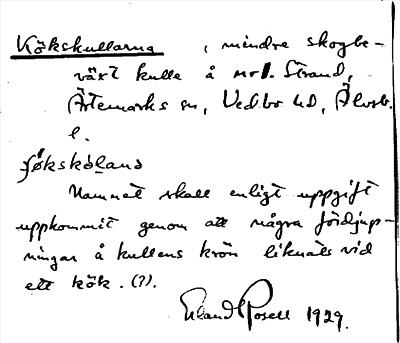 Kökskullarna , mindre skogbe-
växt kulle å nr 1. Strand,
Ärtemarks sn, Vedbo hd, Älvsb.
l.
Namnet skall enligt uppgift
uppkommit genom att några fördjup-
ningar å kullens krön liknats vid
ett kök. (?).
Erland Rosell 1929.